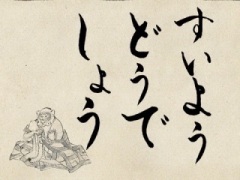 すいよう
どうで
しょう